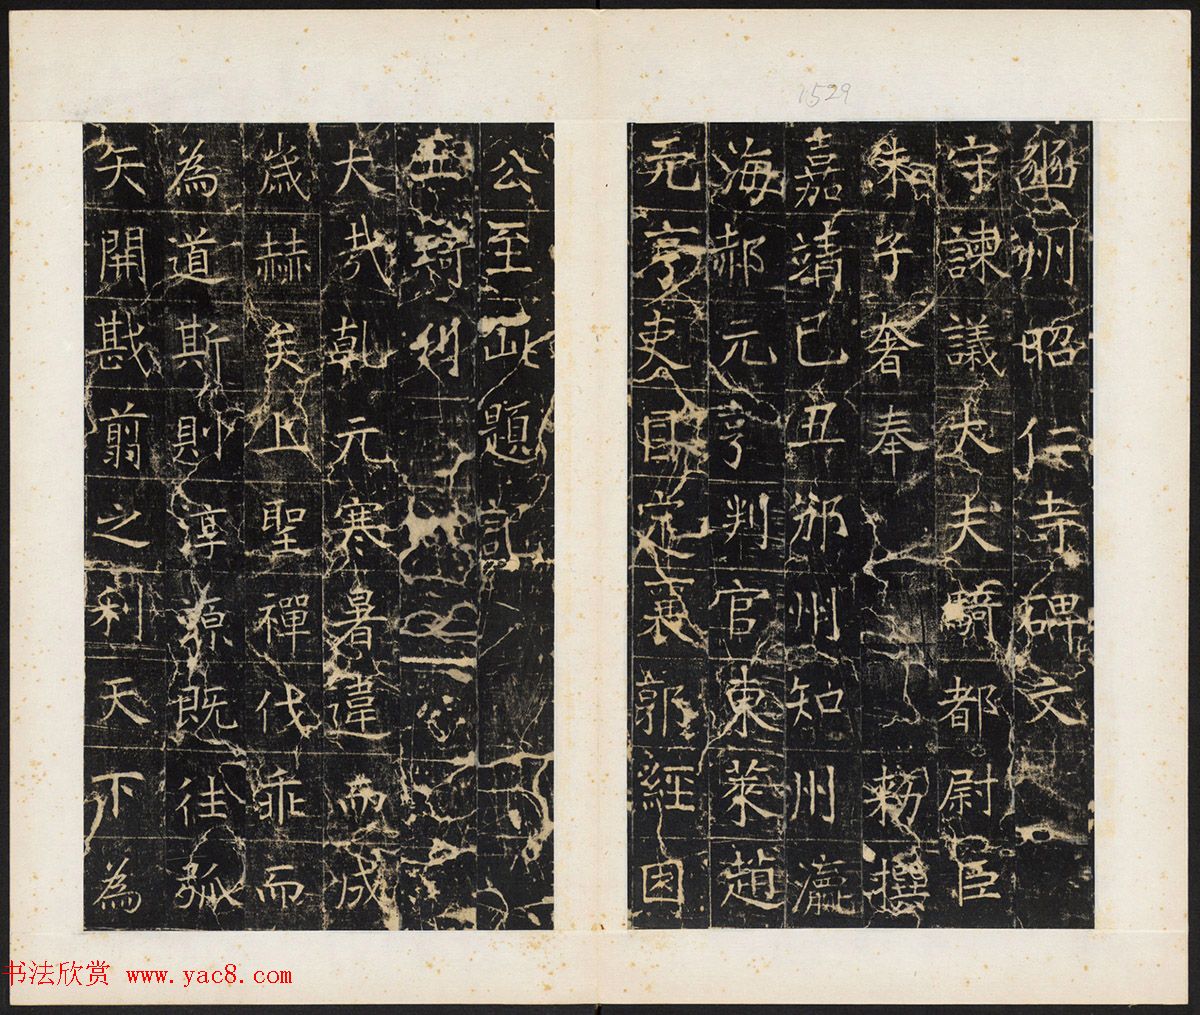 1529
豳州昭仁寺碑文
守諫議大夫騎都尉臣
朱子奢奉 敕撰
嘉靖己丑邠州知州瀛
海郝元亨判官東萊趙
元亨吏目定襄郭經因
公至此題記
大哉乾元寒暑違而成
歲赫矣上聖禪代乖而
為道斯則淳源既往弧
矢開戡翦之利天下為
书法欣赏 www.yac8.com